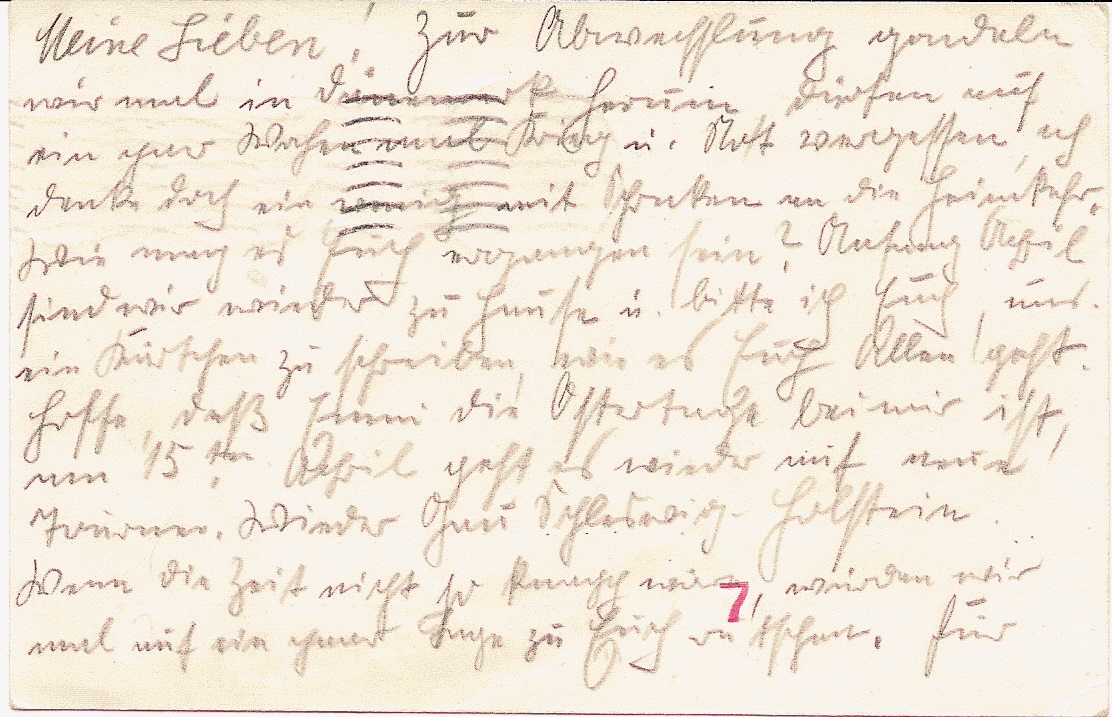 Meine Lieben! Zur Abwechslung gondeln
wir mal in Dänemark herum, dürfen auf
ein paar Wochen mal Krieg u. Not vergessen, ich
denke doch ein wenig mit Schrecken an die Heimkehr.
Wie mag es Euch ergangen sein? Anfang April
sind wir wieder zu Hause u. bitte ich Euch, uns.
ein Kärtchen zu schreiben, wie es Euch Allen geht.
Hoffe, daß Immi die Ostertage bei mir ist,
am 15.ten April geht es wieder auf neue
Tournee. Wieder Gau Schleswig-Holstein.
Wenn die Zeit nicht so knapp wäre, würden wir
mal auf ein paar Tage zu Euch rutschen. Für
7